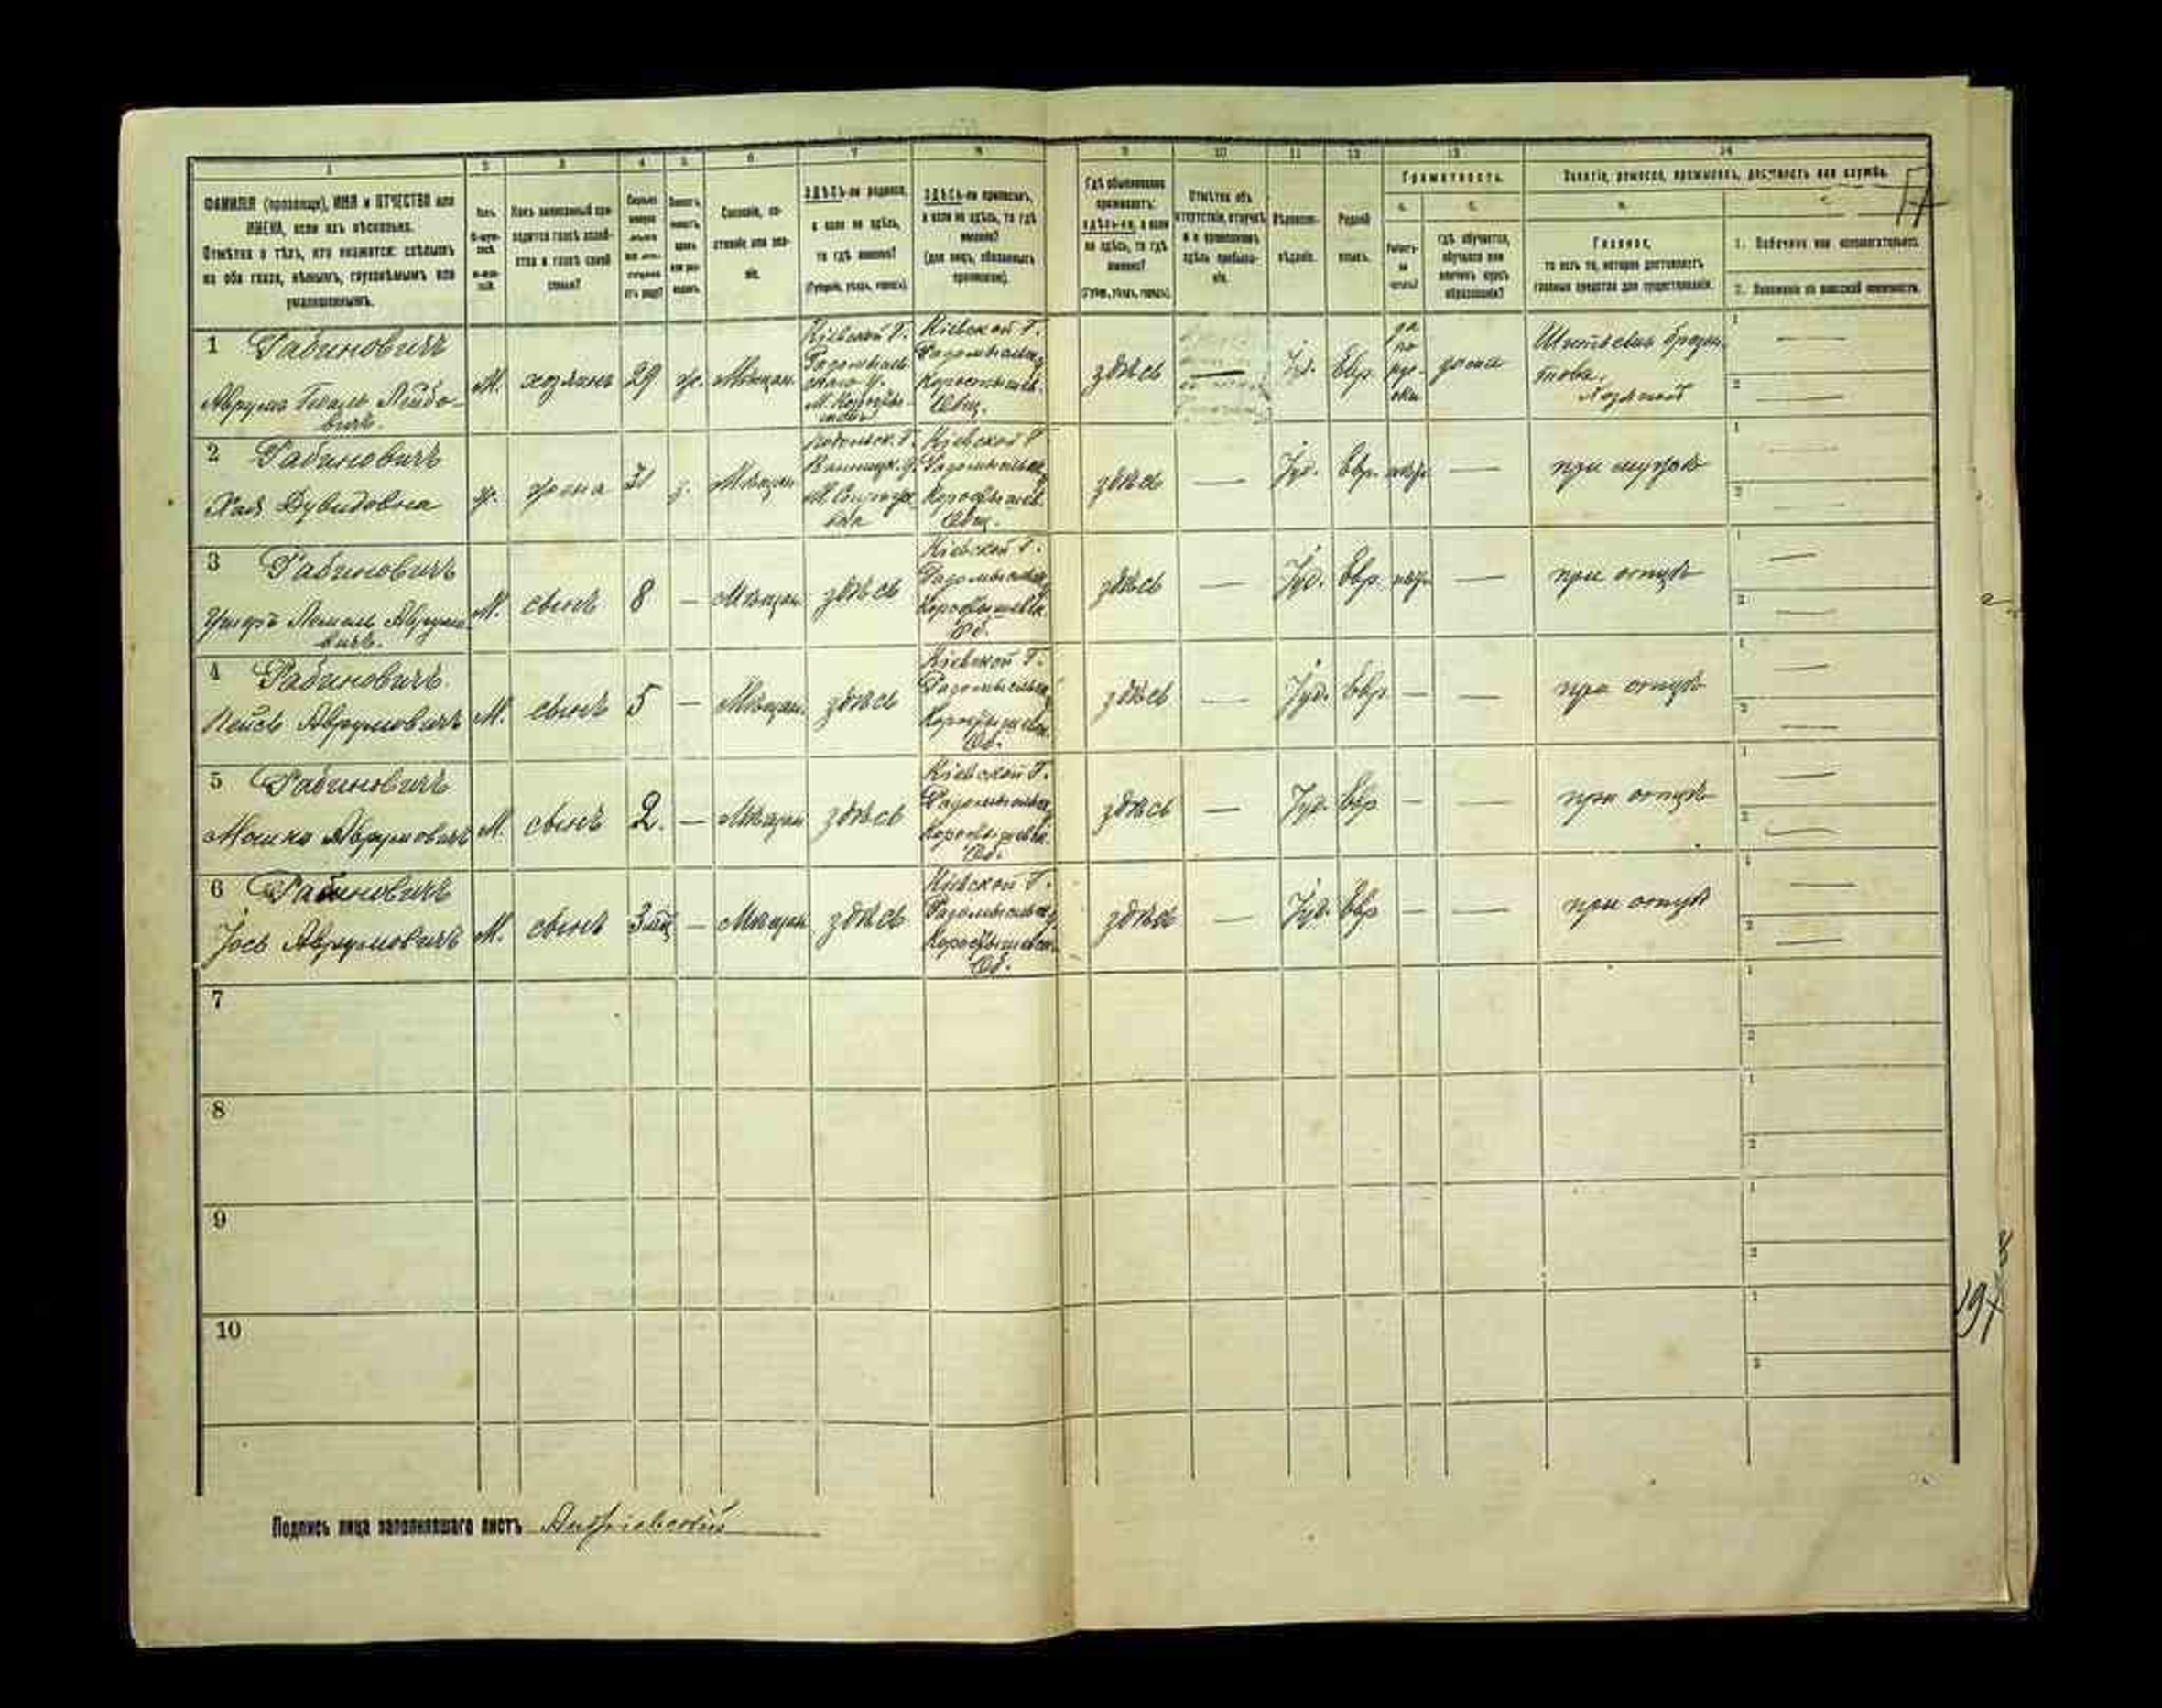 1 2 3 4 5 6 7 8 9 10 11 12 13 14
ФАМИЛІЯ (прозвище), ИМЯ и ОТЧЕСТВО или
ИМЕНА, если ихъ нѣсколько.
Отмѣтка о тѣхъ, кто окажется: слѣпымъ
на оба глаза, нѣмымъ, глухонѣмымъ или
умалишеннымъ.
Сословіе, со-
стояніе или зва-
ніе.
ЗДѢСЬ-ли родился,
а если не здѣсь,
то гдѣ именно?
(Губернія, уѣздъ, городъ).
ЗДѢСЬ-ли приписанъ,
а если не здѣсь, то гдѣ
именно?
(для лицъ, обязанныхъ
припискою).
Гдѣ обыкновенно
проживаетъ:
здѣсь-ли, а если
не здѣсь, то гдѣ
именно?
(Губер., уѣздъ, городъ).
Отмѣтка объ
отсутствіи, отлучкѣ
и о временномъ
здѣсь пребыва-
ніи.
Вѣроиспо-
вѣданіе.
Родной
языкъ.
Грамотность.
а. б.
Умѣетъ-
ли
читать?
гдѣ обучается,
обучался или
кончилъ курсъ
образованія?
Занятіе, ремесло, промыселъ, должность или служба.
17
Главное,
то есть то, которое доставляетъ
главныя средства для существованія.
1. Побочное или вспомогательное.
2. Положеніе по воинской повинности.
1 Рабиновичъ
Аврумъ Лейбо-
вичъ.
М. хозяинъ 29 ж. Мѣщан.
Кіевской Г.
Радомысль-
скаго у.
Кіевской Г.
Радомысльск.
Коростышев.
Общ.
здѣсь — Іуд. Евр.
да
по
рус-
ски
дома
Хозяинъ
2 Рабиновичъ
Хая Дувидовна
ж. жена 31 з. Мѣщан.
Подольск. Г.
Винницк. у.
Кіевской Г
Радомысльск.
Коростышев.
Общ.
здѣсь — Іуд. Евр. — при мужѣ
3 Рабиновичъ
Лемель Аврумо-
вичъ.
М. сынъ 8 — Мѣщан. здѣсь
Кіевской Г.
Радомысльск.
Коростышевск.
Об.
здѣсь — Іуд. Евр. — при отцѣ
4 Рабиновичъ.
Пейсь Аврумовичъ М. сынъ 5 — Мѣщан. здѣсь
Кіевской Г.
Радомысльск.
Коростышевск.
Об.
здѣсь — Іуд. Евр. — — при отцѣ
5 Рабиновичъ
Мошко Аврумовичъ М. сынъ 2. — Мѣщан здѣсь
Кіевской Г.
Радомысльск.
Коростышевск.
Об.
здѣсь — Іуд. Евр. — — при отцѣ
6 Рабиновичъ
Іось Аврумовичъ М. сынъ 3 мѣс — Мѣщан здѣсь
Кіевской Г.
Радомысльск.
Коростышевск.
Об.
здѣсь — Іуд. Евр. — — при отцѣ
7
8
9
10
Подпись лица заполнявшаго листъ